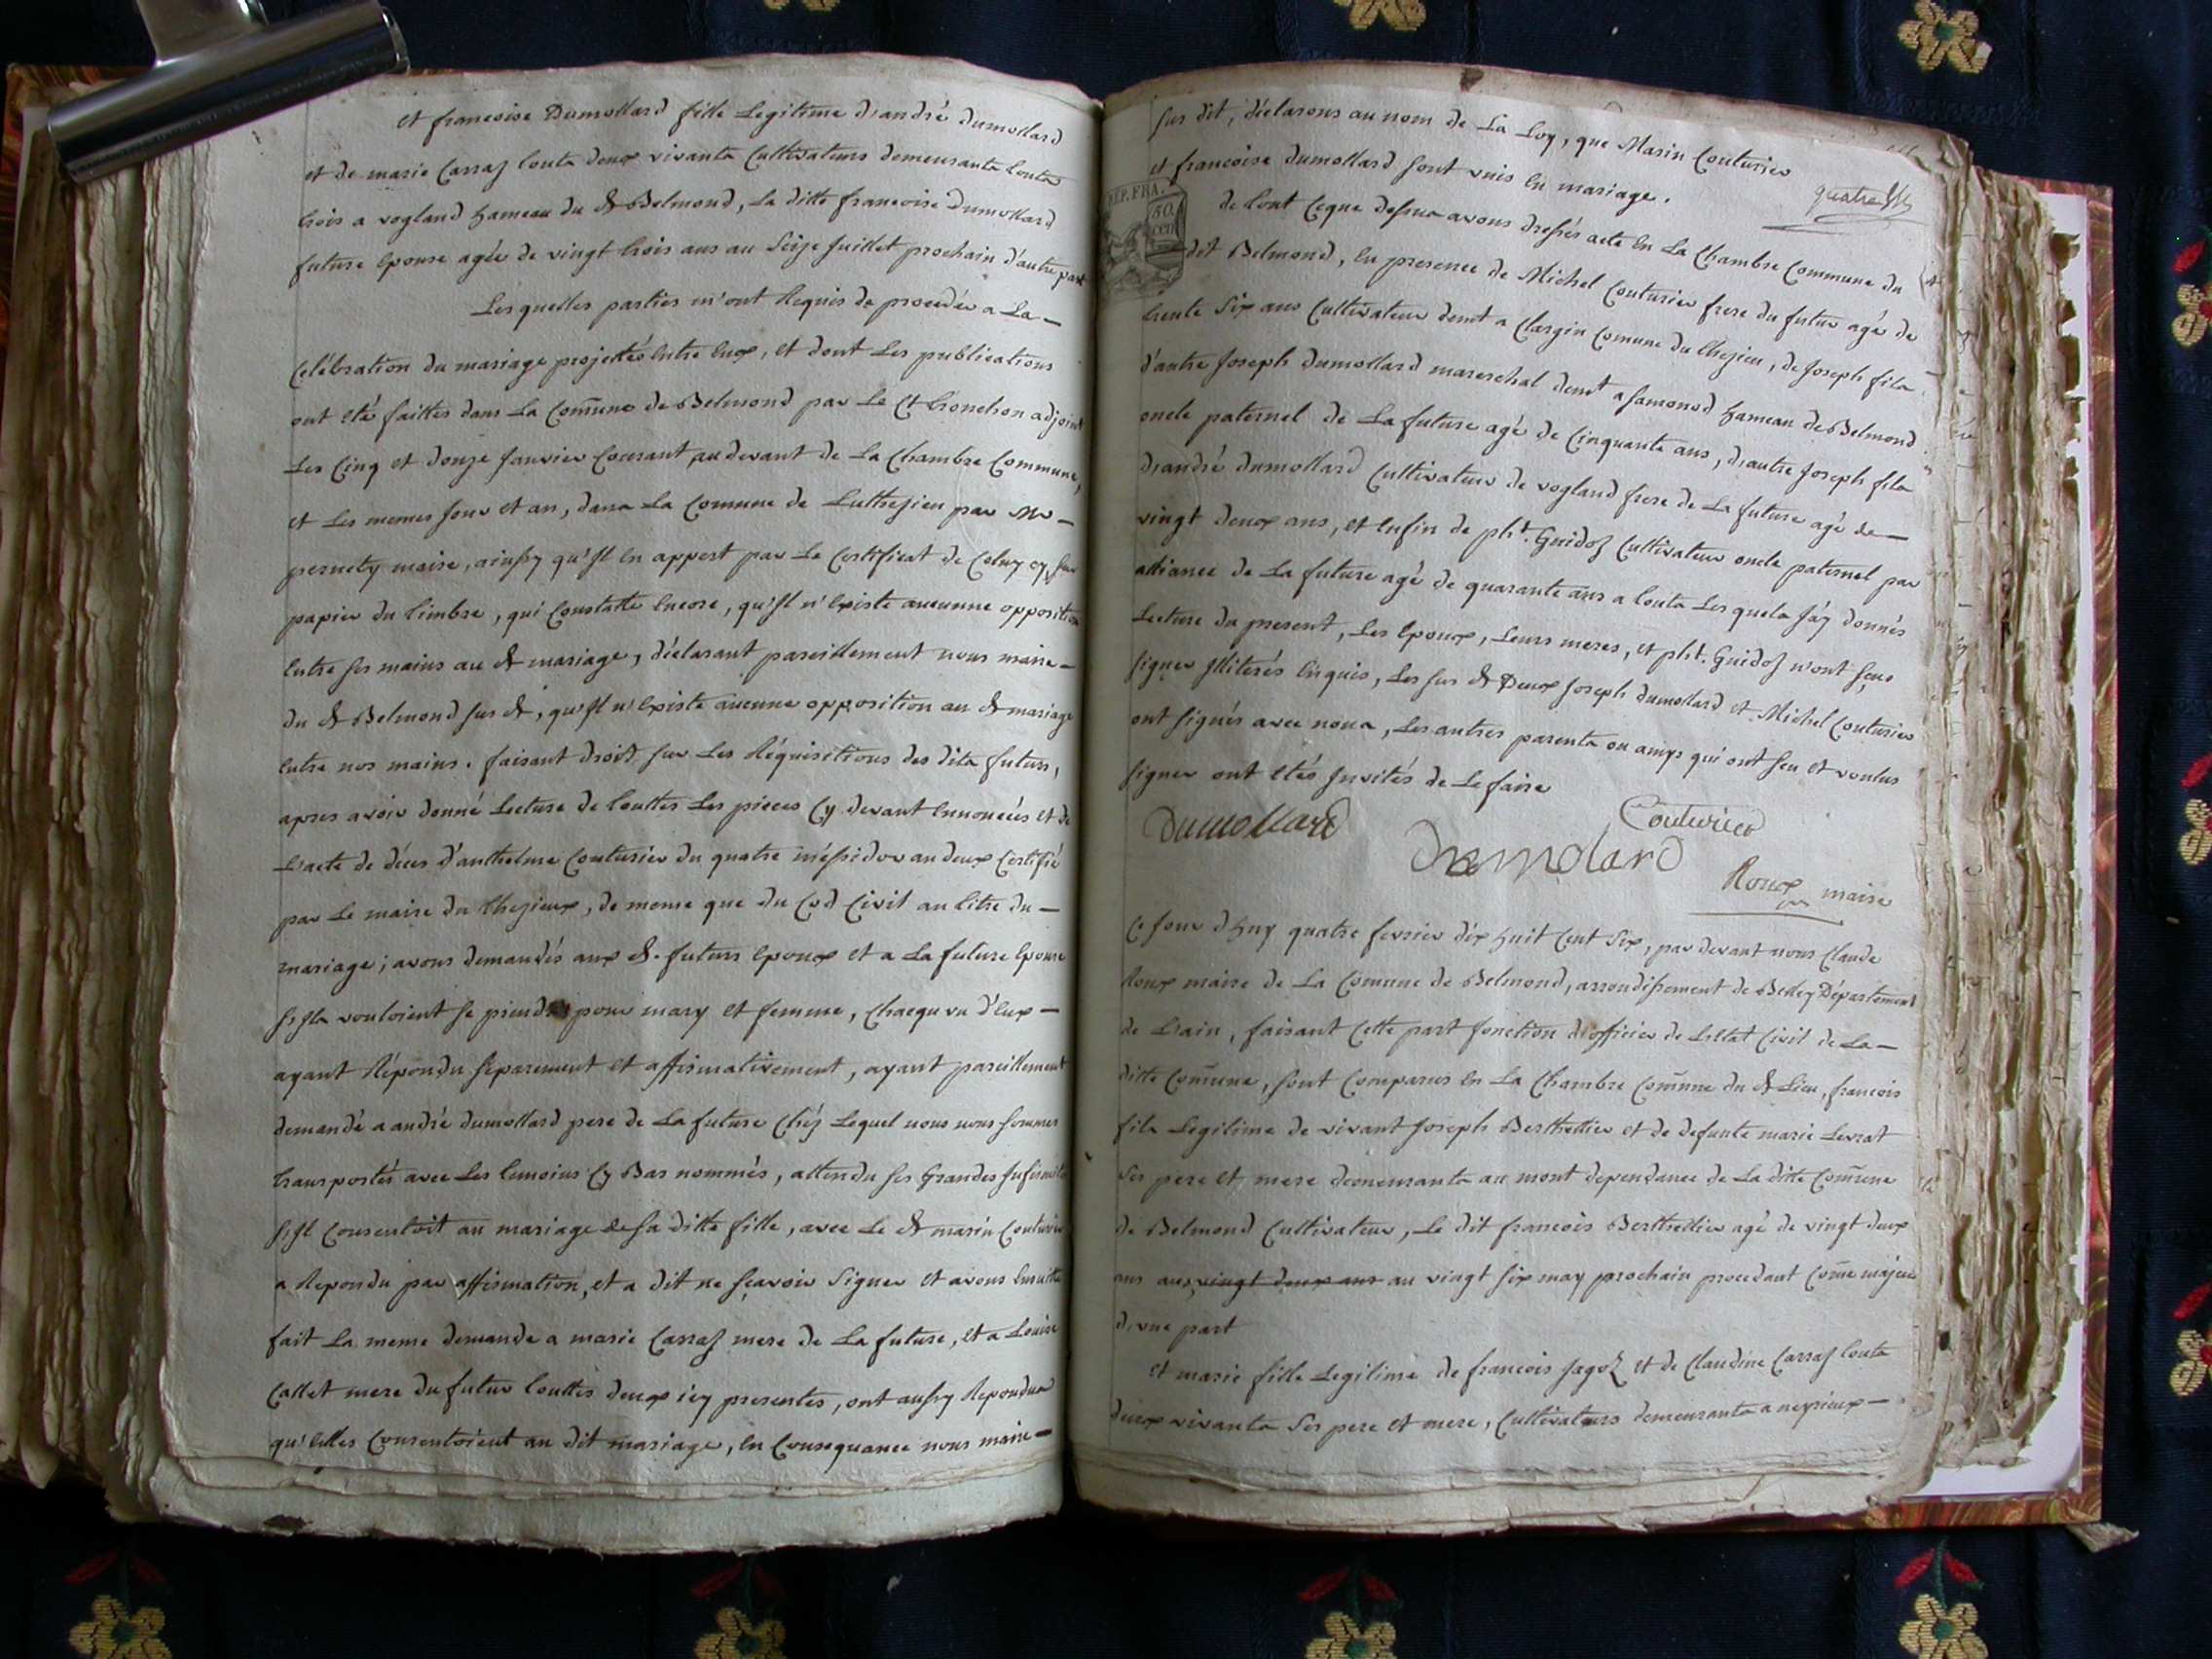 et francoise Dumollard fille Legitime d'andré dumollard
et de marie Carraz touts deux vivants Cultivateurs demeurants touts
trois a vogland hameau du dt Belmond, La ditte francoise Dumollard
future Epouse agée de vingt trois ans au Seize Juillet prochain d'autre part
Les quelles parties m'ont Requis de procedér a La —
Celébration du mariage projettés Entre Eux, et dont Les publications
ont Eté faittes dans La Comune de Belmond par Le Ct tronchon adjoint
Les Cinq et douze Janvier Courant, au devant de La Chambre Commune,
et Les memes Jour et an, dans La Comune de Luthezieu par Mr —
pernety maire, ainssy qu'Jl En appert par Le Certificat de Celuy cy, sur
papier du timbre, qui Constatte Encore, qu'Jl n'Existe aucunne opposition
Entre ses mains au dt mariage, déclarant pareillement nous maire —
du dt Belmond sus dt, qu'Jl n'Existe aucunne opposition au dt mariage
Entre nos mains. faisant droit sur Les Réquisitions des dits futurs,
apres avoir donné Lecture de touttes Les pieces Cy devant Ennoncées et de
L'acte de déces d'anthelme Couturier du quatre méssidor an deux Certifié
par Le maire du thezieux, de meme que du Cod Civil au titre du —
mariage; avons demandés aux dt. futurs Epoux et a La future Epouse
s'Jls vouloient se prendre pour mary et femme, Chacqu un d'Eux —
ayant Répondu séparement et affirmativement, ayant pareillement
demandé a andré dumollard pere de La future Chéz Lequel nous nous sommes
transportés avec Les temoins Cy Bas nommés, attendu ses Grandes Infirmités
s'Jl Consentoit au mariage de sa ditte fille, avec Le dt marin Couturier
a Repondu par affirmation, et a dit ne sçavoir Signer et avons Ensuitte
fait La meme demande a marie Carraz mere de La future, et a Louise
Callet mere du futur touttes deux icy presentes, ont aussy Repondus
qu'Elles Consentoient au dit mariage, En Consequance nous maire —
sus dit, déclarons au nom de La Loy, que Marin Couturier
et francoise dumollard sont unis En mariage.
quatre
RÉP. FRA.
50
de tout Ceque dessus avons dressés acte En La Chambre Commune du
dit Belmond, En presence de Michel Couturier frere du futur agé de
trente Six ans Cultivateur demt a Clargin Comune du thezieu, de Joseph fils
d'autre Joseph Dumollard mareschal demt a samonod hameau de Belmond
oncle paternel de La future agé de Cinquante ans, d'autre Joseph fils
d'andré dumollard Cultivateur de vogland frere de La future agé de —
vingt deux ans, et Enfin de pht. Guidoz Cultivateur oncle paternel par
alliance de La future agé de quarante ans a touts Les quels J'ay donnés
Lecture du present, Les Epoux, Leurs meres, et pht. Guidoz n'ont sçus
signer Jlliterés Enquis, Les sus dt Deux Joseph dumollard et Michel Couturier
ont signés avec nous, Les autres parents ou amys qui ont seu et voulus
signer ont Etés Jnvités de Le faire
Dumollard
Couturier
Dumolard
Roux maire
Ce Jour d'huy quatre fevrier dix huit Cent Six, par devant nous Claude
Roux maire de La Comune de Belmond, arrondissement de Belley Département
de L'ain, faisant Cette part fonction d'officier de L'Etat Civil de La —
ditte Comune, sont Comparus En La Chambre Comune du dt Lieu, francois
fils Legitime de vivant Joseph Berthellier et de defunte marie Levrat
Ses pere et mere demeurants au mont dependance de La ditte Comune
de Belmond Cultivateur, Le dit francois Berthellier agé de vingt deux
ans aux vingt deux ans au vingt six may prochain procedant Come majeur
d'une part
et marie fille Legitime de francois Jagoz et de Claudine Carraz touts
deux vivants Ses pere et mere, Cultivateurs demeurants a neyrieux —